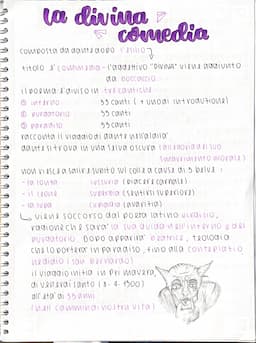 la divina
comedia
composta da dante dopo l'esilio
titolo è "commedia" - l'aggettivo "DIVINA" viene aggiunto
da Boccaccio
il poema è diviso in tre cantiche
① inferno 33 canti (+ uno di introduzione)
② purgatorio 33 canti
③ paradiso 33 canti
racconta il viaggio di dante nell'aldilà
dante si trova in una selva oscura
smarrimento morale)
non riesce a salire sul colle a causa di 3 belve :
- la lonza lussuria (piacere carnale)
- il leone superbia (sentirsi superiore)
- la lupa cupidia (avarizia)
viene soccorso dal poeta latino virgilio,
ragione che sarà la sua guida nell'inferno e del
purgatorio. Dopo apparirà beatrice, teologia
che lo porterà in paradiso, fino alla contemplatio
di dio (san Bernardo)
il viaggio inizia in primavera,
di venerdì santo (8-4-1300)
all'età di 35 anni
(nel cammin di nostra vita)